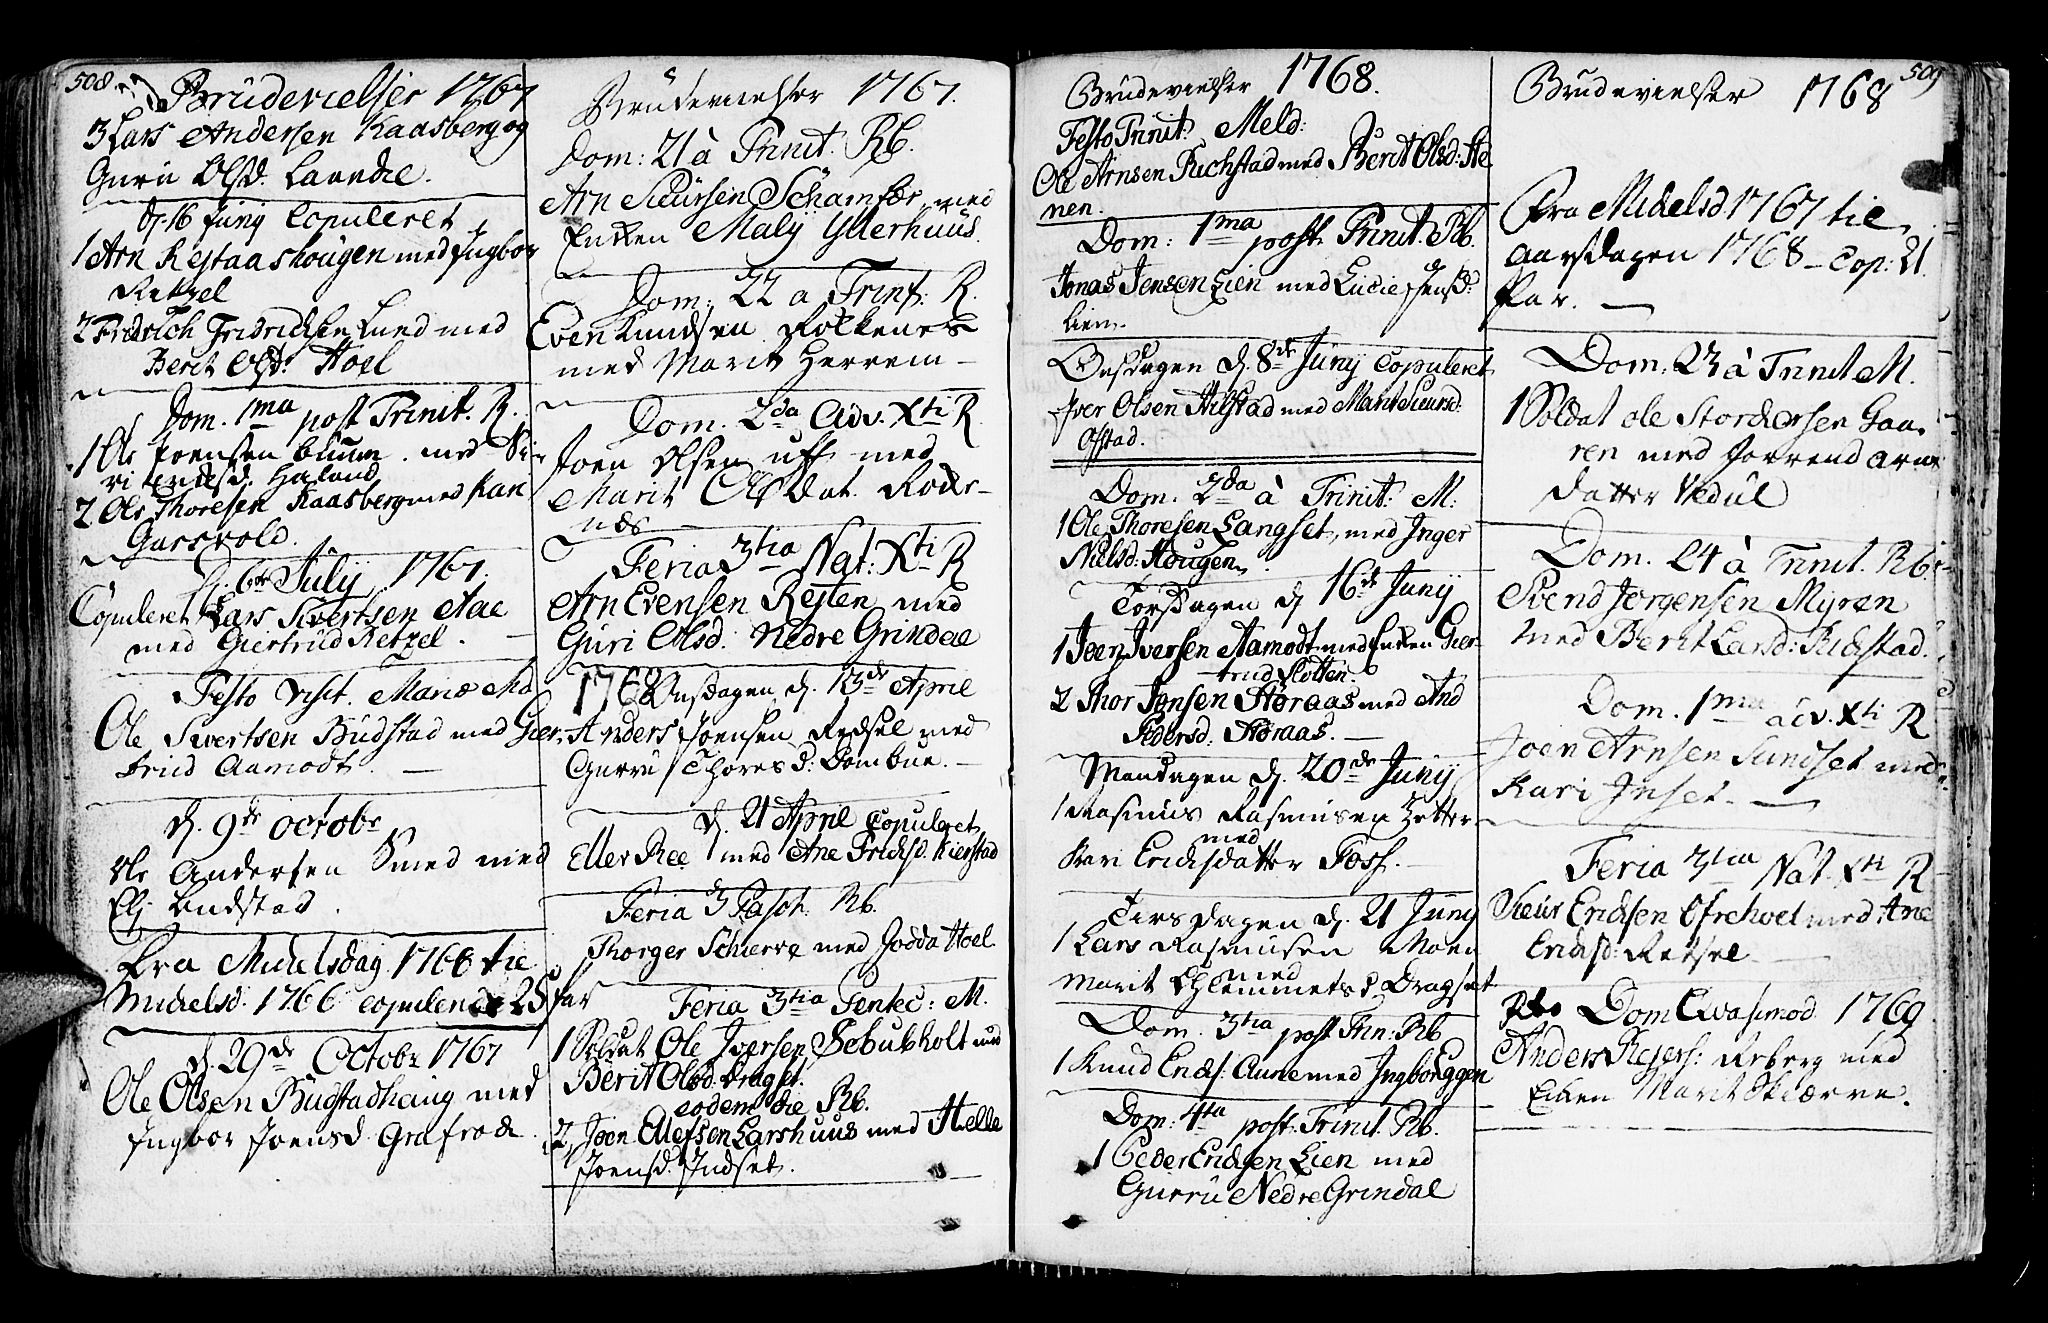 508.
Brudevielser 1767
3 Lars Andersen Kaasberg og
Guru Olsd. Laundie.
D. 16 Juny Copuleret
1 Arn Restaashougen med Ingbor
Retzel
2 Fredrich Fridrichsen Lund med
Berit Olsd: Hoel
Dom. 1ma post Trinit. R.
1 Ole Joensen Cluum med Si-
ri Hæland
2 Ole Thoresen Kaasberg med Kari
Garsvold.
D. 6te July 1767.
Copuleret Lars Sivertsen Aae
med Giertrud Retzel.
Festo Visit. Mariæ Md
Ole Sivertsen Budstad med Gier-
trud Aamodt.
d. 9de octobr
Ole Andersen Smed med
Elj Budstad.
Fra Michelsdag 1766 til
Michelsd: 1766 copulerede 25 par
d. 29de Octobr 1767
Ole Olsen Budstadhaug med
Ingbor Joensd Grafrode
Brudevielser 1767.
Dom: 21 à Trinit. Rb.
Arn Siursen Schamfær med
Enken Malj Ytterhuus.
Dom: 22 a Trinit: R.
Even Knudsen Rokkenes
med Marit Herrem
Dom. 2da Adv. Xti R.
Joen Olsen uff med
Marit Olsdat. Roks-
nes
Feria 3tia Nat: Xti R
Arn Evensen Resten med
Guri Olsd: Nedre Grindal
1768 Onsdagen d. 13de April
Anders Joensen Redsel med
Gurru Thoresd: Dombue.
d. 21 April Copuleret
Eller Ree med Ane Fricksd. Kierstad
Feria 3 Pasch. Rb.
Thorger Schierve med Jodda Hoel
Feria 3tia Pentec: M.
1 Soldat Ole Iversen Schubholt med
Berit Olsd. Dragset.
eodem die Rb.
2 Joen Ellefsen Larshuus med Helle
Joensd. Indset.
Brudevielser 1768.
Festo Trinit: Meld:
Ole Arnsen Richstad med Berit Olsd: Ste
nen.
Dom: 1ma post Trinit. Rb.
Jonas Jensen Lien med Lucie Jensd:
Lien.
Onsdagen d. 8de Juny Copuleret
Iver Olsen Stilstad med Marit Siursd:
Ofstad.
Dom. 2da à Trinit: M:
1 Ole Thoresen Langset, med Inger
Nielsd: Hougen.
Torsdagen d 16de Juny
1 Joen Iversen Aamodt med Enken Gier-
trud Slotten.
2 Thor Jonsen Storaas med And
Pedersd: Storaas.
Mandagen d. 20de Juny
1 Rasmus Rasmusen Zetter
med
Kari Erichsdatter Foss.
Tirsdagen d. 21 Juny
1 Lars Rasmusen Moen
med
Marit Clemmetsd Dragset
Dom. 3tia post Trin: Rb
1 Knud Erichs: Aune med Ingbor Eggen
Dom: 4ta post Trinit Rb.
1 Peder Erichsen Lien med
Gurru Nedre Grindal
509
Brudevielser 1768
Fra Michelsd 1767 til
aarsdagen 1768 Cop: 21
Par.
Dom: 23 à Trinit M.
1 Soldat Ole Stordersen Gaa-
ren med Jorrend Arne
datter Vedul
Dom. 24 à Trinit. Rb:
Svend Jørgensen Myren
med Berit Larsd: Richstad.
Dom. 1ma adv. Xti R
Joen Arnsen Sundset med
Kari Inset.
Feria 3tia Nat. Xti R
Siur Erichsen Øfrehoel med Ane
Erichsd: Retzel
Dom Qvasimod. 1769
Anders Reiers: Reberg med
Enken Marit Skiærve.